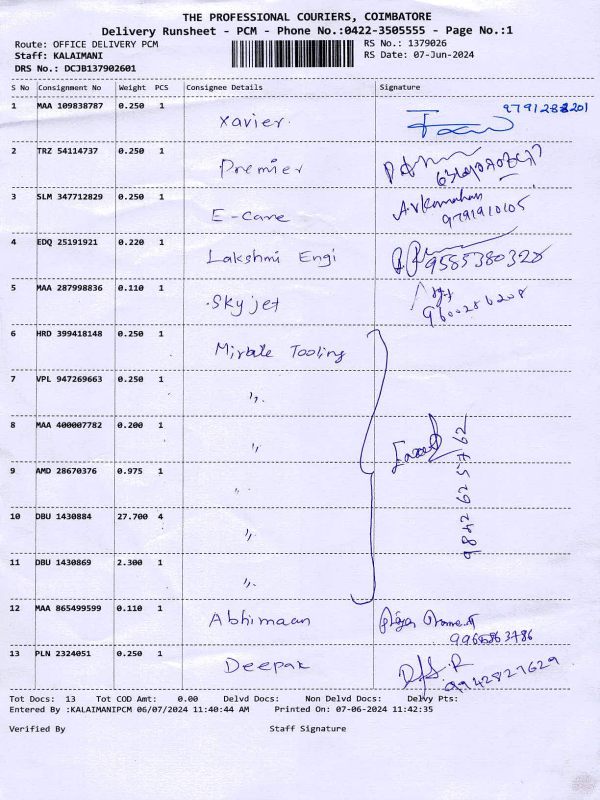 THE PROFESSIONAL COURIERS, COIMBATORE
Delivery Runsheet - PCM - Phone No.:0422-3505555 - Page No.:1
Route: OFFICE DELIVERY PCM RS No.: 1379026
Staff: KALAIMANI RS Date: 07-Jun-2024
DRS No.: DCJB137902601
S No Consignment No Weight PCS Consignee Details Signature
1 MAA 109838787 0.250 1 Xavier.
2 TRZ 54114737 0.250 1 Premier
3 SLM 347712829 0.250 1 E-Care 9791910105
4 EDQ 25191921 0.220 1 Lakshmi Engi 9585380320
5 MAA 287998836 0.110 1 Skyjet 9600286208
6 HRD 399418148 0.250 1 Tooling
7 VPL 947269663 0.250 1 〃
8 MAA 400007782 0.200 1 〃
9 AMD 28670376 0.975 1 〃
10 DBU 1430884 27.700 4 〃
9842625762
11 DBU 1430869 2.300 1 〃
12 MAA 865499599 0.110 1 Abhimaan
13 PLN 2324051 0.250 1 Deepak 9942827629
Tot Docs: 13 Tot COD Amt: 0.00 Delvd Docs: Non Delvd Docs: Delvy Pts:
Entered By :KALAIMANIPCM 06/07/2024 11:40:44 AM Printed On: 07-06-2024 11:42:35
Verified By Staff Signature